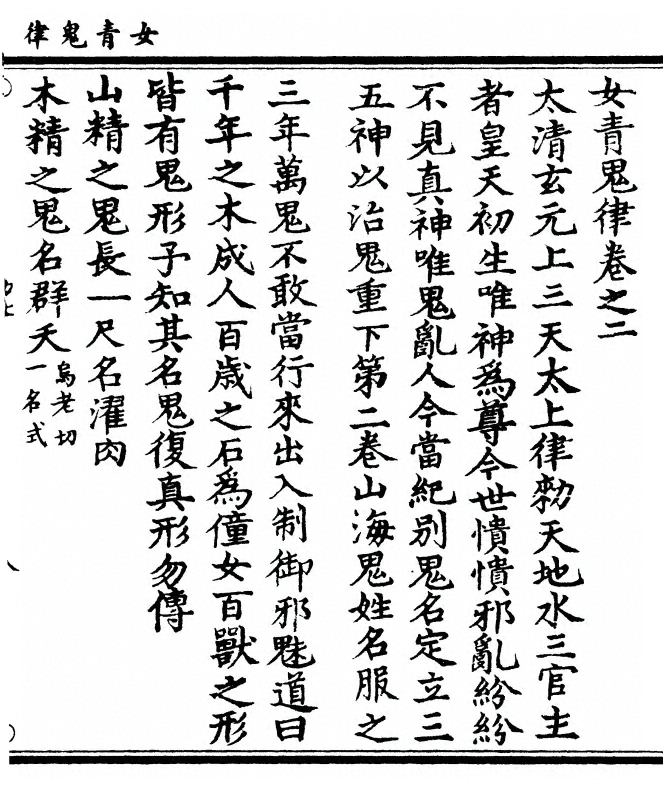 女青鬼律
女青鬼律卷之二
太清玄元上三天太上律勑天地水三官主
者皇天初生唯神為尊今世憒憒邪亂紛紛
不見真神唯鬼亂人今當紀別鬼名定立三
五神以治鬼重下第二卷山海鬼姓名服之
三年萬鬼不敢當行來出入制御邪魅道曰
千年之木成人百歲之石為僮女百獸之形
皆有鬼形予知其名鬼復真形勿傳
山精之鬼長一尺名濯肉
木精之鬼名群夭烏老切一名式